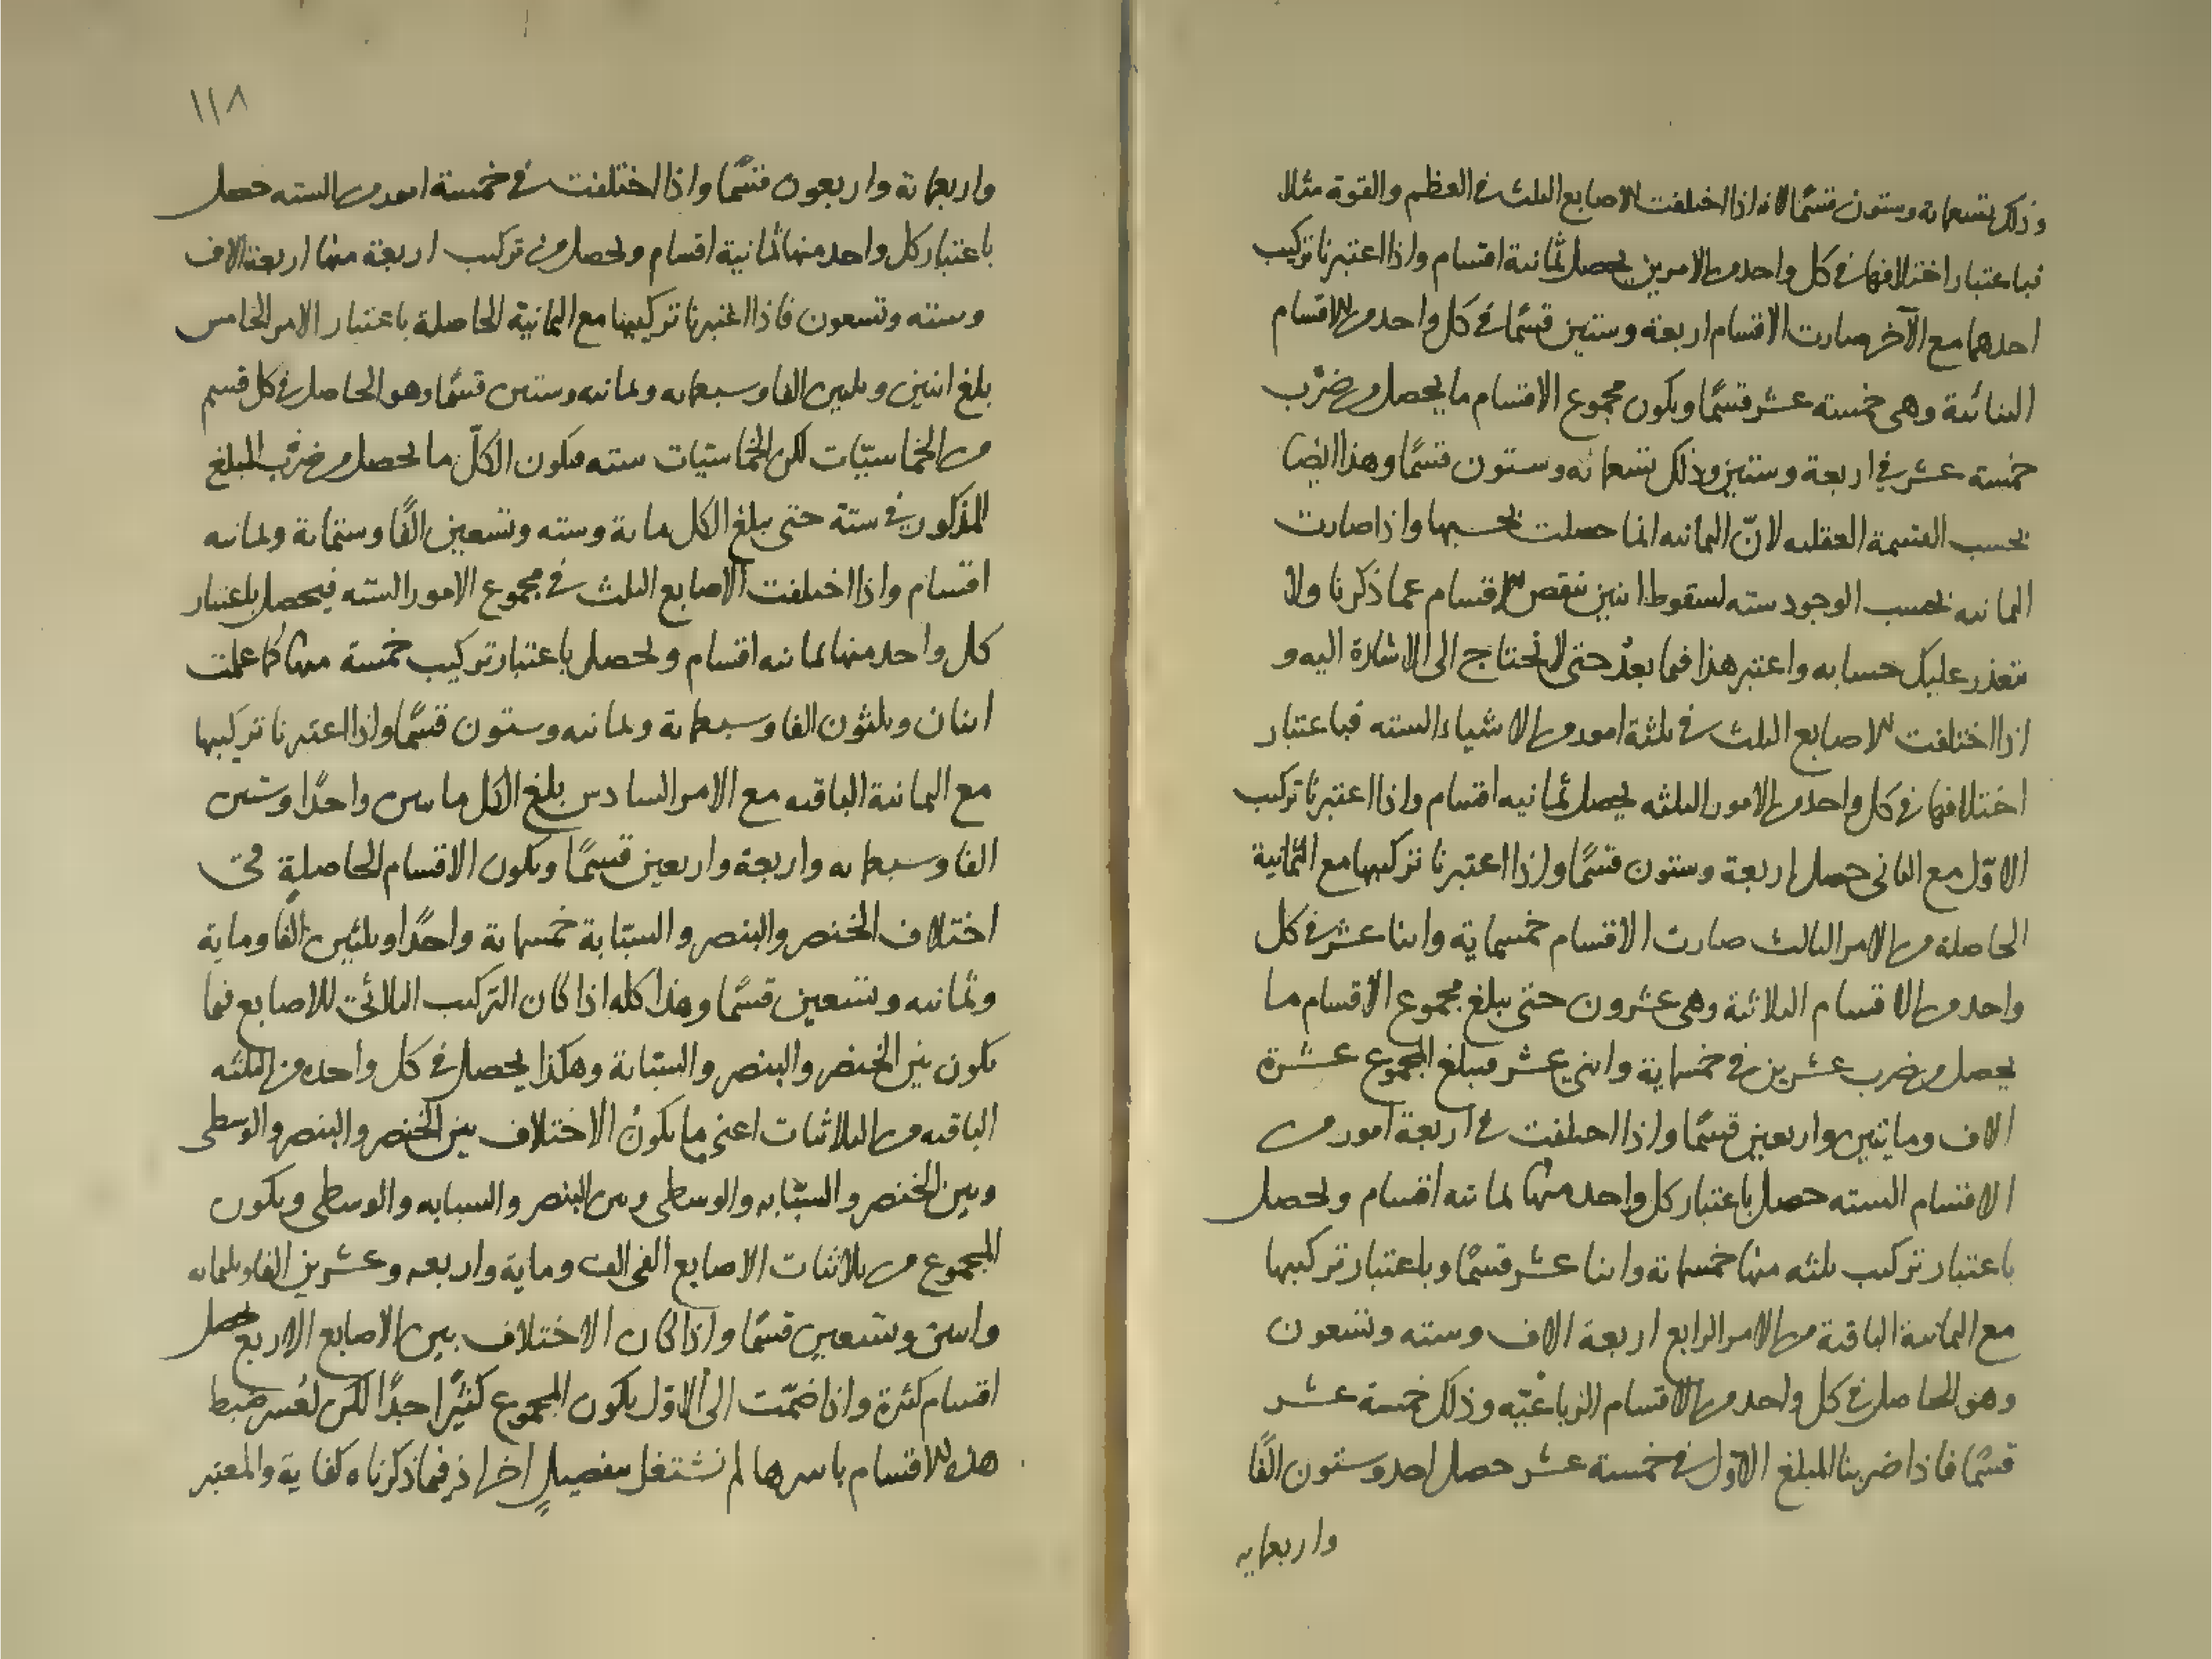 وذلك تسعماية وستون قسمًا لانه اذا اختلفت الاصابع الثلث في العظم والقوة مثلا
فباعتبار اختلافها في كل واحد من الامرين يحصل ثمانية اقسام واذا اعتبرنا تركيب
احدهما مع الآخر صارت الاقسام اربعة وستين قسمًا في كل واحد من الاقسام
الثنائية وهي خمسة عشر قسمًا ويكون مجموع الاقسام ما يحصل من ضرب
خمسة عشر في اربعة وستين وذلك تسعمائه وستون قسمًا وهذا ايضا
بحسب القسمة العقليه لانّ الثمانيه انما حصلت بحسبها واذا صارت
الثمانيه بحسب الوجود سته لسقوط اثنين تنقص الاقسام عما ذكرنا ولا
يتعذر عليك حسابه واعتبر هذا فيما بعدُ حتى لا نحتاج الى الاشارة اليه و
اذا اختلفت الاصابع الثلث في ثلثة امور من الاشياء السته فباعتبار
اختلافها في كل واحد من الامور الثلثه يحصل ثمانيه اقسام واذا اعتبرنا تركيب
الاوّل مع الثاني حصل اربعة وستون قسمًا واذا اعتبرنا تركيبها مع الثمانية
الحاصلة من الامر الثالث صارت الاقسام خمسماية واثنا عشر في كل
واحد من الاقسام الثلاثية وهي عشرون حتى يبلغ مجموع الاقسام ما
يحصل من ضرب عشرين في خمسماية واثني عشر فيبلغ المجموع عشرة
الاف ومايتين واربعين قسمًا واذا اختلفت في اربعة امور من
الاقسام السته حصل باعتبار كل واحد منها ثمانيه اقسام ويحصل
باعتبار تركيب ثلثه منها خمسماية واثنا عشر قسمًا وباعتبار تركيبها
مع الثمانية الباقية من الامر الرابع اربعة الاف وسته وتسعون
وهو الحاصل في كل واحد من الاقسام الرباعيّه وذلك خمسة عشر
قسمًا فاذا ضربنا المبلغ الاول في خمسة عشر حصل احد وستون الفًا
واربعمايه
١١٨
واربعماية واربعون قسمًا واذا اختلفت في خمسة امور من السته حصل
باعتبار كل واحد منها ثمانية اقسام ويحصل من تركيب اربعة منها اربعة الاف
وسته وتسعون فاذا اعتبرنا تركيبها مع الثمانية الحاصلة باعتبار الامر الخامس
بلغ اثنين وثلثين الفا وسبعمايه وثمانيه وستين قسمًا وهو الحاصل في كل قسم
من الخماسيّات لكن الخماسيّات سته فيكون الكلّ ما يحصل من ضرب المبلغ
المذكور في ستة حتى يبلغ الكل ماية وسته وتسعين الفًا وستماية وثمانيه
اقسام واذا اختلفت الاصابع الثلث في مجموع الامور السته فيحصل باعتبار
كل واحد منها ثمانيه اقسام ويحصل باعتبار تركيب خمسة منها كما علمت
اثنان وثلثون الفا وسبعماية وثمانيه وستون قسمًا واذا اعتبرنا تركيبها
مع الثمانية الباقيه مع الامر السادس بلغ الكل مايتين واحدًا وستين
الفا وسبعمايه واربعة واربعين قسمًا ويكون الاقسام الحاصلة في
اختلاف الخنصر والبنصر والسبّابة خمسماية واحدًا وثلثين الفا وماية
وثمانيه وتسعين قسمًا وهذا كله اذا كان التركيب الثلاثي للاصابع فيما
يكون بين الخنصر والبنصر والسبّابة وهكذا يحصل في كل واحده من الثلثه
الباقيه من الثلاثيات اعني ما يكونُ الاختلاف بين الخنصر والبنصر والوسطى
وبين الخنصر والسبّابه والوسطى وبين البنصر والسبابه والوسطى ويكون
المجموع من ثلاثيات الاصابع الفي الف وماية واربعه وعشرين الفا وثلثمايه
واثنين وتسعين قسمًا واذا كان الاختلاف بين الاصابع الاربع حصل
اقسام كثيرة واذا ضمّت الى الاول يكون المجموع كثيرًا جدًا لكن لعُسر ضبط
هذه الاقسام باسرها لم نشتغل بتفصيلٍ اخر اذ فيما ذكرناه كفاية والمعتبر